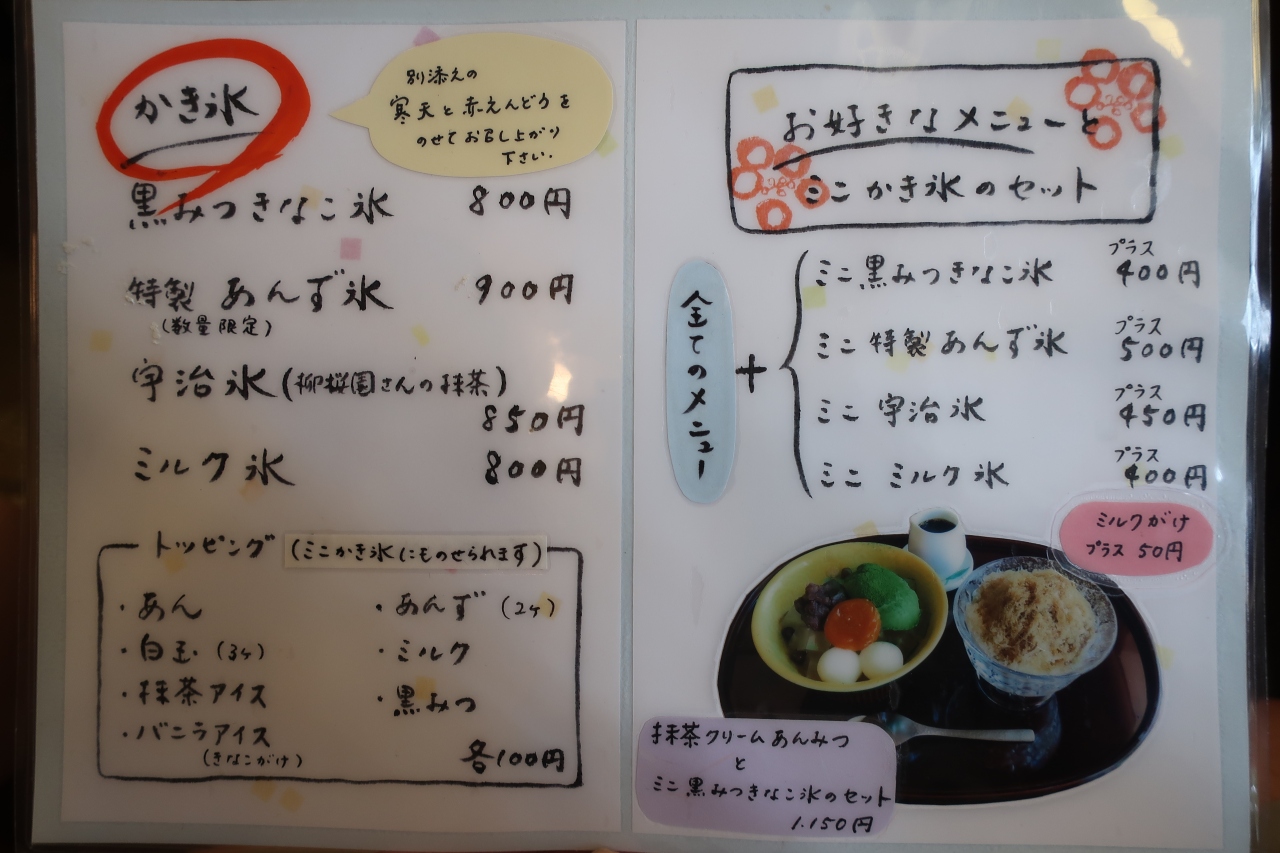 かき氷
別添えの
寒天と赤えんどうを
のせてお召し上がり
下さい.
黒みつきなこ氷 800円
特製 あんず氷 900円
(数量限定)
宇治氷(柳桜園さんの抹茶)
850円
ミルク氷 800円
トッピング (ミニかき氷にものせられます)
・あん ・あんず(2ケ)
・白玉(3ケ) ・ミルク
・抹茶アイス ・黒みつ
・バニラアイス
(きなこがけ) 各100円
お好きなメニューと
ミニかき氷のセット
全てのメニュー +
プラス
ミニ黒みつきなこ氷 400円
プラス
ミニ特製あんず氷 500円
プラス
ミニ宇治氷 450円
プラス
ミニミルク氷 400円
ミルクがけ
プラス50円
抹茶クリームあんみつ
と
ミニ黒みつきなこ氷のセット
1.150円